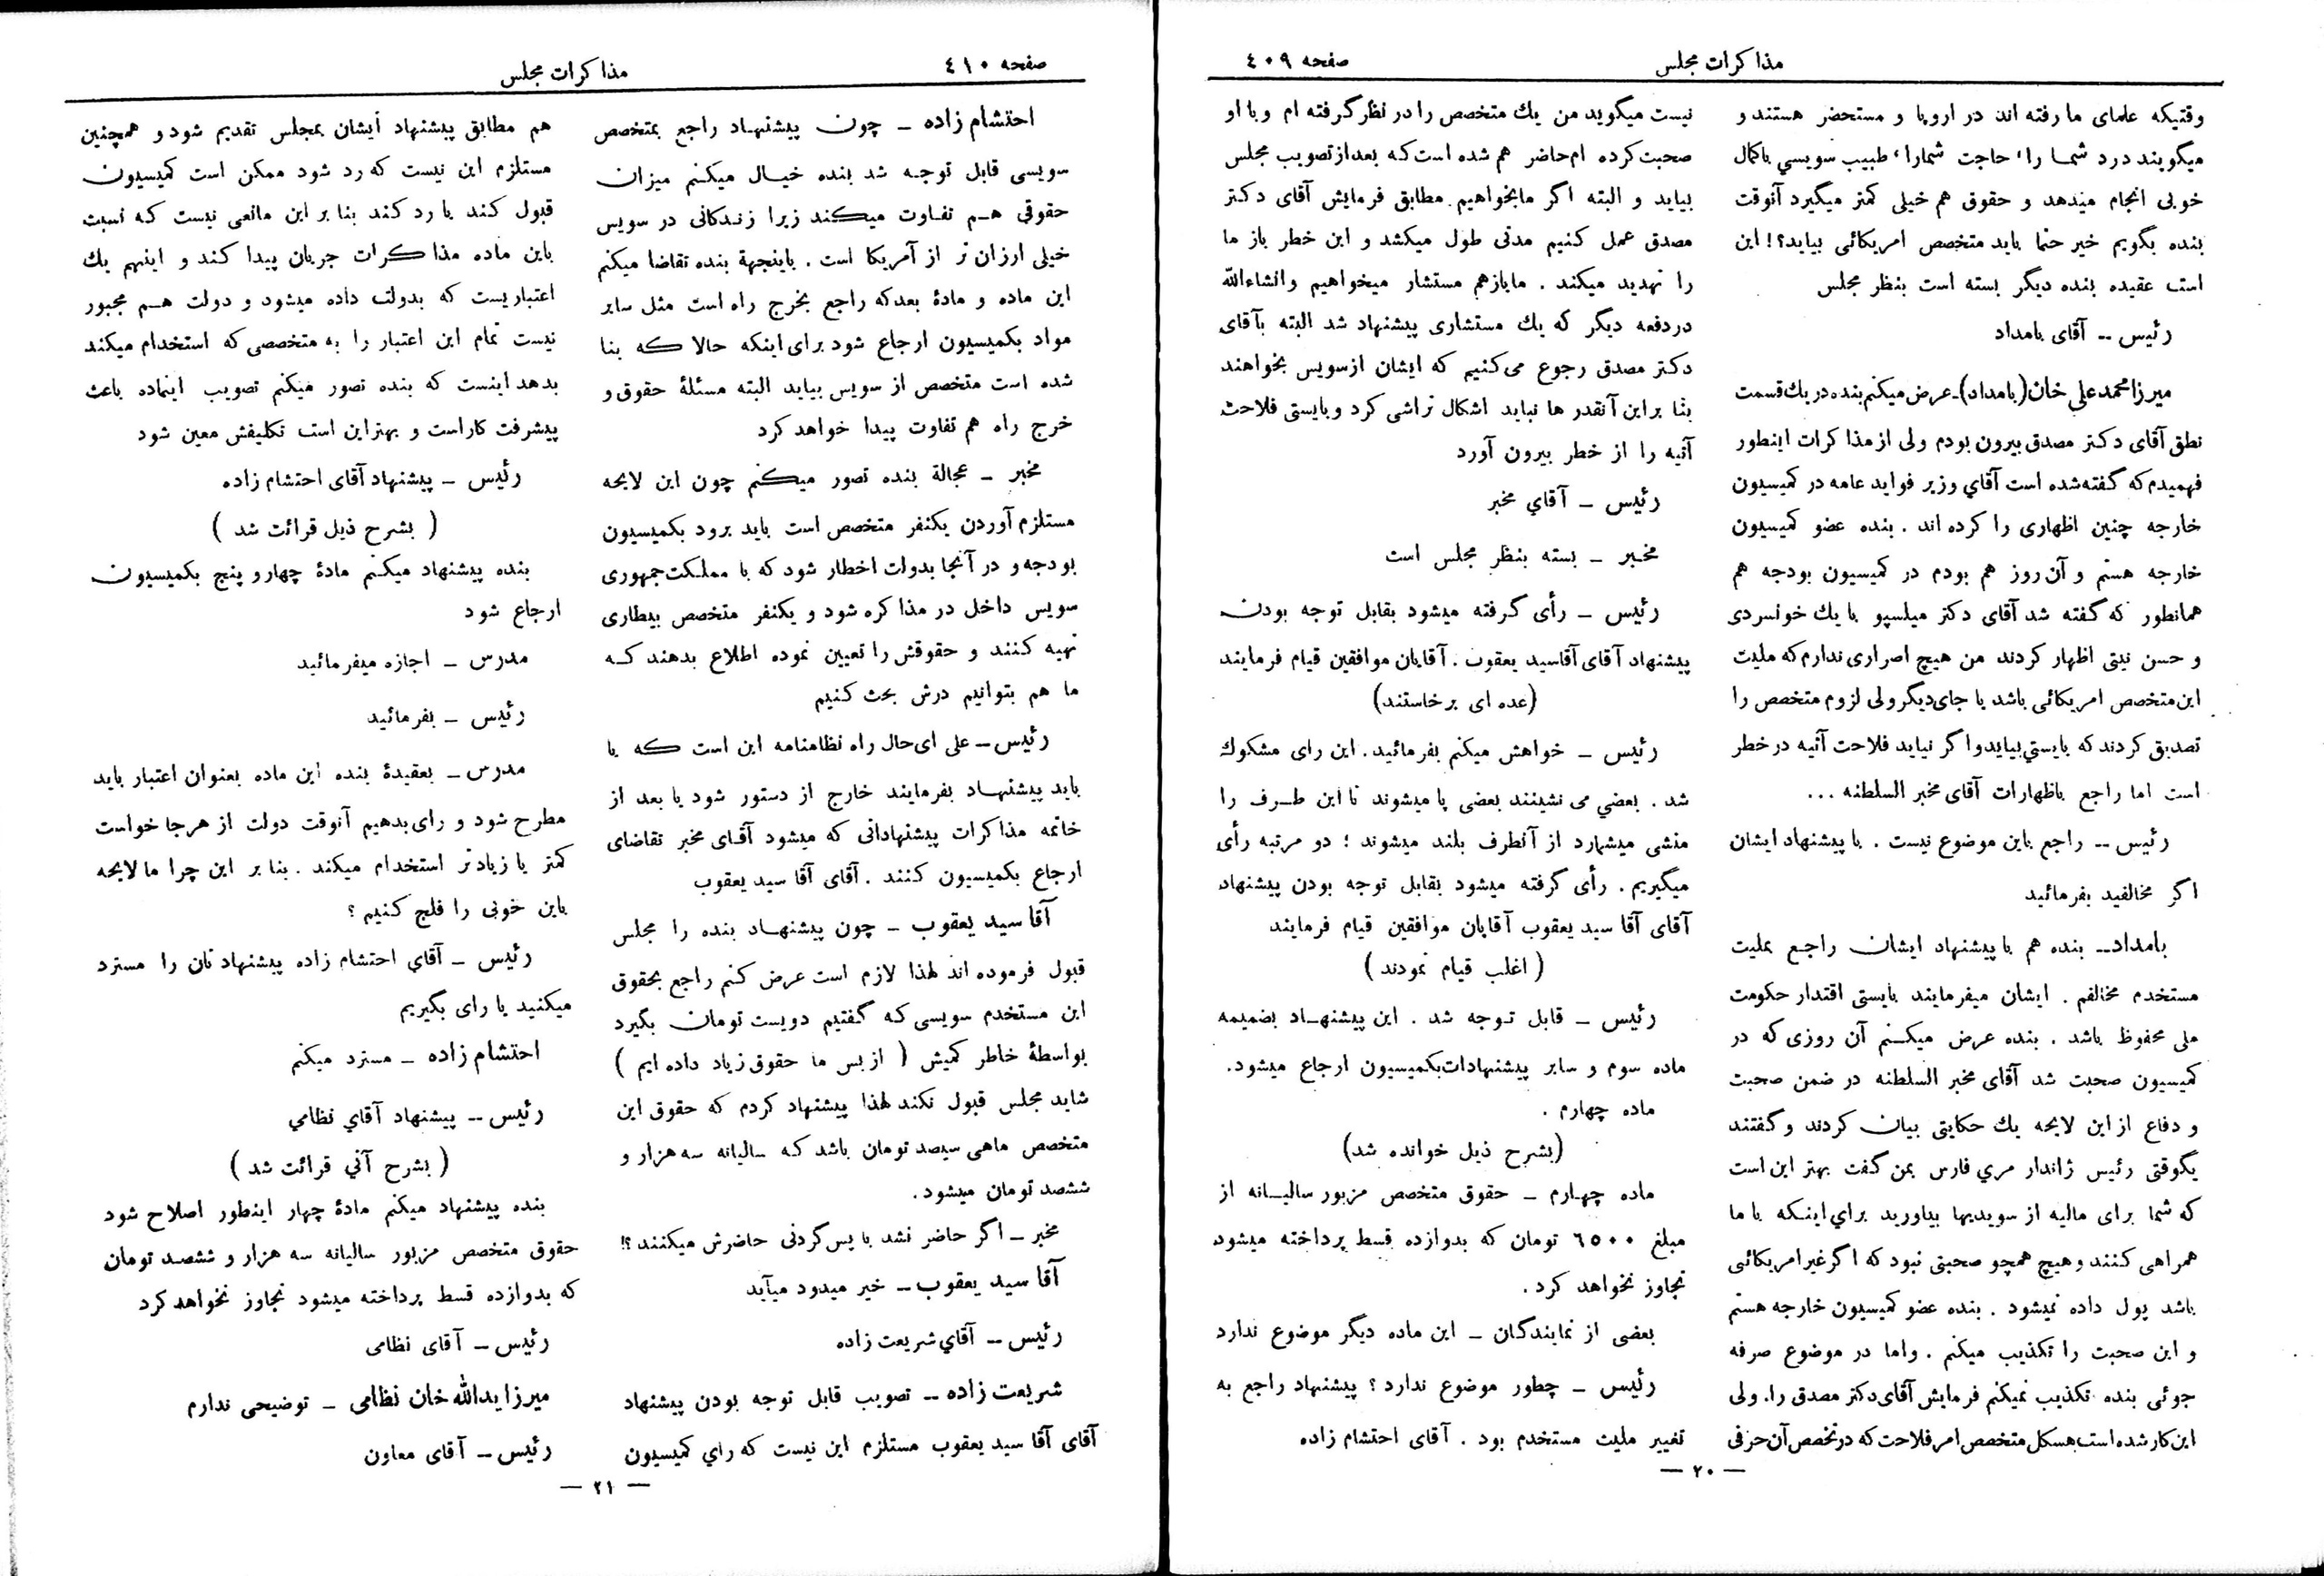 مذاکرات مجلس
صفحه ٤٠٩
وقتیکه علمای ما رفته اند در اروپا و مستحضر هستند و
میگویند درد شما را، حاجت شمارا، طبیب سویسي باکمال
خوبی انجام میدهد و حقوق هم خیلی کمتر میگیرد آنوقت
بنده بگویم خیر حتما باید متخصص امریکائی بیاید؟! این
است عقیده بنده دیگر بسته است بنظر مجلس
رئیس -- آقای بامداد
میرزا محمد علي خان (بامداد)ـ عرض میکنم بنده در یك قسمت
نطق آقای دکتر مصدق بیرون بودم ولی از مذاکرات اینطور
فهمیدم که گفته شده است آقاي وزیر فواید عامه در کمیسیون
خارجه چنین اظهاری را کرده اند . بنده عضو کمیسیون
خارجه هستم و آن روز هم بودم در کمیسیون بودجه هم
همانطور که گفته شد آقای دکتر میلسپو با یك خونسردی
و حسن نیتی اظهار کردند من هیچ اصراری ندارم که ملیت
این متخصص امریکائی باشد یا جای دیگر ولی لزوم متخصص را
تصدیق کردند که بایستي بیاید و اگر نیاید فلاحت آتیه در خطر
است اما راجع باظهارات آقای مخبر السلطنه ...
رئیس -- راجع باین موضوع نیست . با پیشنهاد ایشان
اگر مخالفید بفرمائید
بامداد-- بنده هم با پیشنهاد ایشان راجع بملیت
مستخدم مخالفم . ایشان میفرمایند بایستی اقتدار حکومت
ملی محفوظ باشد . بنده عرض میکنم آن روزی که در
کمیسیون صحبت شد آقای مخبر السلطنه در ضمن صحبت
و دفاع از این لایحه یك حکایتی بیان کردند و گفتند
یکوقتی رئیس ژاندار مري فارس بمن گفت بهتر این است
که شما برای مالیه از سویدیها بیاورید براي اینکه با ما
همراهی کنند و هیچ همچو صحبتی نبود که اگر غیر امریکائی
باشد پول داده نمیشود . بنده عضو کمیسیون خارجه هستم
و این صحبت را تکذیب میکنم . واما در موضوع صرفه
جوئی بنده تکذیب نمیکنم فرمایش آقای دکتر مصدق را. ولی
این کار شده است. مسکل متخصص امر فلاحت که در تخصص آن حرفی
نیست میگوید من یك متخصص را در نظر گرفته ام و با او
صحبت کرده ام حاضر هم شده است که بعد از تصویب مجلس
بیاید و البته اگر ما بخواهیم مطابق فرمایش آقای دکتر
مصدق عمل کنیم مدتی طول میکشد و این خطر باز ما
را تهدید میکند . ما بازهم مستشار میخواهیم وانشاءالله
در دفعه دیگر که یك مستشاری پیشنهاد شد البته بآقای
دکتر مصدق رجوع می کنیم که ایشان از سویس بخواهند
بنا بر این آنقدر ها نباید اشکال تراشی کرد و بایستی فلاحت
آتیه را از خطر بیرون آورد
رئیس - آقاي مخبر
مخبر - بسته بنظر مجلس است
رئیس - رأی گرفته میشود بقابل توجه بودن
پیشنهاد آقای آقاسید یعقوب . آقایان موافقین قیام فرمایند
(عده ای برخاستند)
رئیس - خواهش میکنم بفرمائید . این رای مشکوك
شد . بعضي می نشینند بعضی پا میشوند تا این طرف را
منشی میشمارد از آنطرف بلند میشوند ؛ دو مرتبه رأی
میگیریم . رأی گرفته میشود بقابل توجه بودن پیشنهاد
آقای آقا سید یعقوب آقایان موافقین قیام فرمایند
( اغلب قیام نمودند )
رئیس - قابل توجه شد . این پیشنهاد بضمیمه
ماده سوم و سایر پیشنهادات بکمیسیون ارجاع میشود.
ماده چهارم .
(بشرح ذیل خوانده شد)
ماده چهارم - حقوق متخصص مزبور سالیانه از
مبلغ ٦٥٠٠ تومان که بدوازده قسط پرداخته میشود
تجاوز نخواهد کرد .
بعضی از نمایندگان - این ماده دیگر موضوع ندارد
رئیس - چطور موضوع ندارد ؟ پیشنهاد راجع به
تغییر ملیت مستخدم بود . آقای احتشام زاده
— ٢٠ —
صفحه ٤١٠
مذاکرات مجلس
احتشام زاده - چون پیشنهاد راجع بمتخصص
سویسی قابل توجه شد بنده خیال میکنم میزان
حقوقی هم تفاوت میکند زیرا زندگانی در سویس
خیلی ارزان تر از آمریکا است . باینجهة بنده تقاضا میکنم
این ماده و مادۀ بعدکه راجع بخرج راه است مثل سایر
مواد بکمیسیون ارجاع شود برای اینکه حالا که بنا
شده است متخصص از سویس بیاید البته مسئلۀ حقوق و
خرج راه هم تفاوت پیدا خواهد کرد
مخبر - عجالة بنده تصور میکنم چون این لایحه
مستلزم آوردن یکنفر متخصص است باید برود بکمیسیون
بودجه و در آنجا بدولت اخطار شود که با مملکت جمهوری
سویس داخل در مذاکره شود و یکنفر متخصص بیطاری
تهیه کنند و حقوقش را تعیین نموده اطلاع بدهند که
ما هم بتوانیم درش بحث کنیم
رئیس - علی ای حال راه نظامنامه این است که یا
باید پیشنهاد بفرمایند خارج از دستور شود یا بعد از
خاتمه مذاکرات پیشنهاداتی که میشود آقای مخبر تقاضای
ارجاع بکمیسیون کنند . آقای آقا سید یعقوب
آقا سید یعقوب - چون پیشنهاد بنده را مجلس
قبول فرموده اند لهذا لازم است عرض کنم راجع بحقوق
این مستخدم سویسی که گفتیم دویست تومان بگیرد
بواسطۀ خاطر کمیش ( از بس ما حقوق زیاد داده ایم )
شاید مجلس قبول نکند لهذا پیشنهاد کردم که حقوق این
متخصص ماهی سیصد تومان باشد که سالیانه سه هزار و
ششصد تومان میشود.
مخبر - اگر حاضر نشد با پس گردنی حاضرش میکنند ؟!
آقا سید یعقوب - خیر میدود میآید
رئیس -- آقاي شریعت زاده
شریعت زاده -- تصویب قابل توجه بودن پیشنهاد
آقای آقا سید یعقوب مستلزم این نیست که راي کمیسیون
هم مطابق پیشنهاد ایشان بمجلس تقدیم شود و همچنین
مستلزم این نیست که رد شود ممکن است کمیسیون
قبول کند یا رد کند بنا بر این مانعی نیست که نسبت
باین ماده مذاکرات جریان پیدا کند و اینهم یك
اعتباریست که بدولت داده میشود و دولت هم مجبور
نیست تمام این اعتبار را به متخصصی که استخدام میکند
بدهد اینست که بنده تصور میکنم تصویب اینماده باعث
پیشرفت کار است و بهتر این است تکلیفش معین شود
رئیس - پیشنهاد آقای احتشام زاده
( بشرح ذیل قرائت شد )
بنده پیشنهاد میکنم مادۀ چهار و پنج بکمیسیون
ارجاع شود
مدرس - اجازه میفرمائید
رئیس - بفرمائید
مدرس - بعقیدۀ بنده این ماده بعنوان اعتبار باید
مطرح شود و رای بدهیم آنوقت دولت از هر جا خواست
کمتر یا زیادتر استخدام میکند . بنا بر این چرا ما لایحه
باین خوبی را فلج کنیم ؟
رئیس - آقاي احتشام زاده پیشنهاد تان را مسترد
میکنید یا رای بگیریم
احتشام زاده - مسترد میکنم
رئیس -- پیشنهاد آقاي نظامي
( بشرح آتي قرائت شد )
بنده پیشنهاد میکنم مادۀ چهار اینطور اصلاح شود
حقوق متخصص مزبور سالیانه سه هزار و ششصد تومان
که بدوازده قسط پرداخته میشود تجاوز نخواهد کرد
رئیس - آقای نظامی
میرزا یدالله خان نظامی - توضیحی ندارم
رئیس - آقای معاون
— ٢١ —